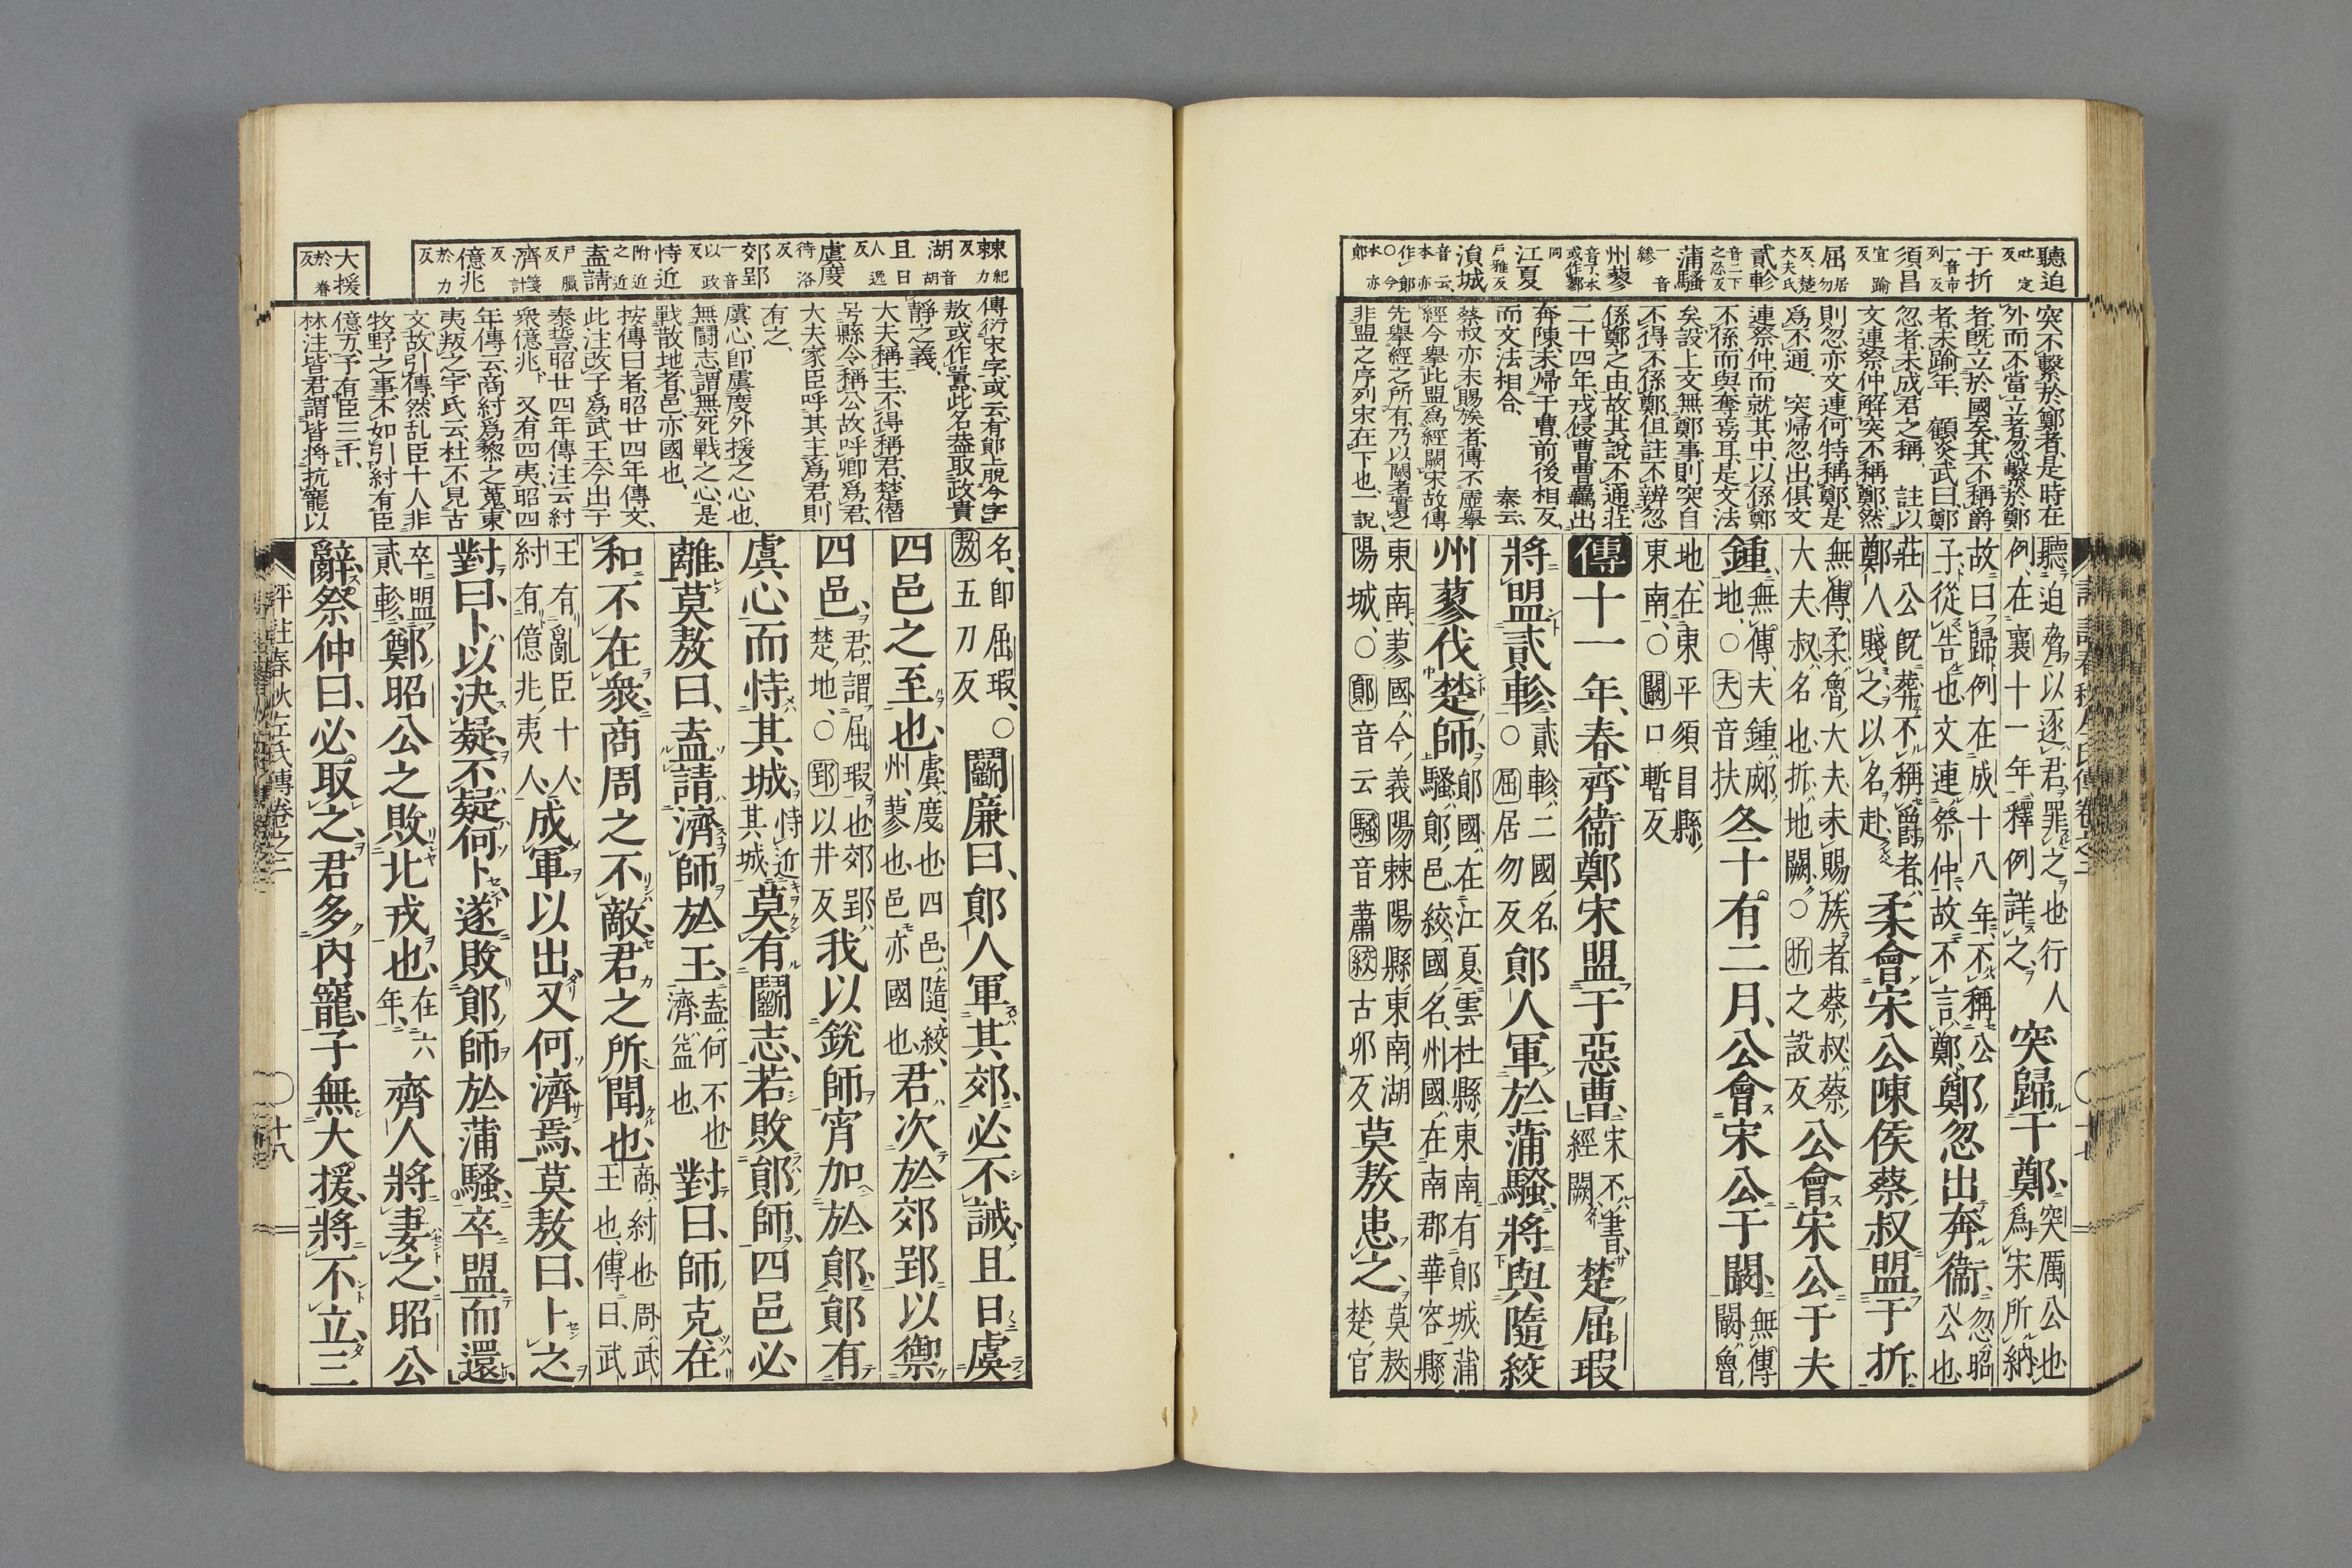 聽迫吐定反
于折一音市列反
須昌宜踰反
屈居勿反楚大夫氏
貳軫音二下之忍反
蒲騷一音縿
州蓼音了本或作鄝同
江夏戸雅反
溳城音云本亦作鄖
突不繫於鄭者是時在
外而不當立者忽繫於鄭
者既立於國矣其不稱爵
者未踰年、顧炎武曰鄭
忽者未成君之稱、註以
文連祭仲解突不稱鄭然
則忽亦文連何特稱鄭是
爲不通、突歸忽出俱文
連祭仲而就其中以係鄭
不係而與奪焉耳是文法
矣設上文無鄭事則突自
不得不係鄭但註不辨忽
係鄭之由故其說不通莊
二十四年戎侵曹曹羈出
奔陳未歸于曹前後相反
而文法相合、秦云、
蔡叔亦未賜族者傳不虛擧
經今擧此盟爲經闕宋故傳
先擧經之所有乃以闕者實之
非盟之序列宋在下也一說
聽迫脅以逐君罪之也行人
例在襄十一年釋例詳之突歸于鄭突厲公也爲宋所納
故曰歸例在成十八年不稱公
子從告也文連祭仲故不言鄭鄭忽出奔衞忽昭公也
莊公既葬不稱爵者
鄭人賤之以名赴柔會宋公陳侯蔡叔盟于折
無傳柔魯大夫未賜族者蔡叔蔡
大夫叔名也折地闕○折之設反公會宋公于夫
鍾無傳夫鍾郕地○夫音扶冬十有二月公會宋公于闞無傳闞魯
地在東平須昌縣
東南○闞口暫反
傳十一年春齊衞鄭宋盟于惡曹宋不書經闕楚屈瑕
將盟貳軫貳軫二國名○屈居勿反鄖人軍於蒲騷將與隨絞
州蓼伐楚師鄖國在江夏雲杜縣東南有鄖城蒲
騷鄖邑絞國名州國在南郡華容縣
東南蓼國今義陽棘陽縣東南湖
陽城○鄖音云騷音蕭絞古卯反莫敖患之莫敖楚官
評註春秋左氏傳卷之二
十七
棘紀力反
湖音胡
且日人逸反
虞度待洛反
郊郢一音以政反
恃近附近之近
盍請戸臘反
濟箋計反
億兆於力反
大援於眷反
傳衍宋字或云有鄖上脫今字
敖或作囂此名葢取政貴
靜之義、
大夫稱主不得稱君楚僭
号縣令稱公故呼卿爲君
大夫家臣呼其主爲君則
有之、
虞心即虞度外援之心也
無鬪志謂無死戰之心是
戰散地者邑亦國也、
按傳曰者昭廿四年傳文
此注改予爲武王今出于
泰誓昭廿四年傳注云紂
衆億兆、又有四夷昭四
年傳云商紂爲黎之蒐東
夷叛之宇氏云杜不見古
文故引傳然乱臣十人非
牧野之事不如引紂有臣
億万予有臣三千、
林注皆君謂皆將抗寵以
名即屈瑕○
敖五刀反鬪廉曰鄖人軍其郊必不誡且日虞
四邑之至也虞度也四邑隨絞
州蓼也邑亦國也君次於郊郢以禦
四邑君謂屈瑕也郊郢
楚地○郢以井反我以銳師宵加於鄖鄖有
虞心而恃其城恃近其城莫有鬪志若敗鄖師四邑必
離莫敖曰盍請濟師於王盍何不也濟益也對曰師克在
和不在衆商周之不敵君之所聞也商紂也周武王也傳曰武
王有亂臣十人
紂有億兆夷人成軍以出又何濟焉莫敖曰卜之
對曰卜以決疑不疑何卜遂敗鄖師於蒲騷卒盟而還
卒盟貳軫鄭昭公之敗北戎也在六年齊人將妻之昭公
辭祭仲曰必取之君多內寵子無大援將不立三
評註春秋左氏傳卷之二
十八